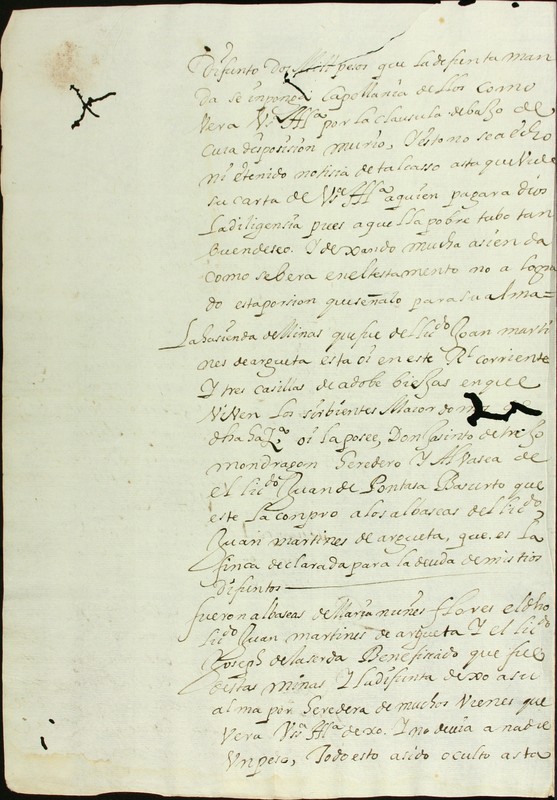 difunto Dos Mill pesos que la defunta man
da se inponga Capellania de llos como
Vera Vs.ª Ill.ª por la clausula debaxo de
cuia desposision murio, Y esto no se a dho
ni e tenido notisia de tal casso asta que Vide
su carta de Vs.ª Ill.ª a quien pagara dios
La diligensia pues aquella pobre tubo tan
Buen deseo. Y dexando mucha asienda
como se bera en el testamento no a logra
do esta porsion que señalo para su alma=
La hasienda de Minas que fue de el licdo Juan marti
nes de argueta esta oi en este Rl corriente
Y tres casillas de adobe biejas en que
Viven los sirbientes Maiordomo
dha haz.da oi la posee, Don Jasinto de trexo
mondragon heredero Y Albasea de
el licdo Juan de Pontasa Basurto que
este la conpro a los albaseas del licdo
Juan martines de argueta, que es la
finca declarada para la deuda de mis tios
difuntos
fueron albaseas de Maria nuñes flores el dho
licdo Juan martines de argueta Y el licdo
Joseph de la serda Benefisiado que fue
destas minas Y la difunta dexo a su
alma por heredera de muchos Vienes que
Vera Vs.ª Ill.ª dexo. Y no devia a nadie
Un peso, Todo esto a sido oculto asta